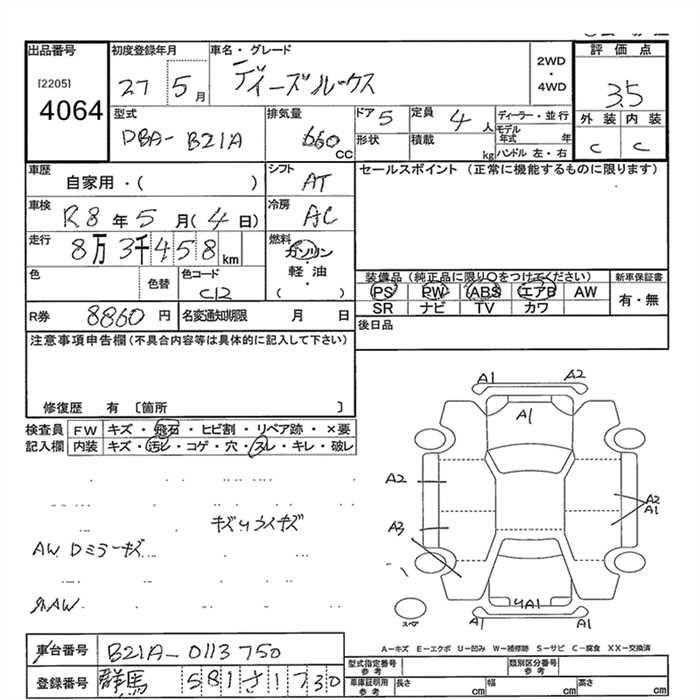 出品番号
[2205]
4064
初度登録年月
27 5月
車名・グレード
デイズルックス
2WD
・
4WD
評価点
3.5
外装 内装
C C
型式
DBA-B21A
排気量
660
CC
ドア 5
形状
定員 4人
積載 kg
ディーラー・並行
モデル年式 年
ハンドル 左・右
車歴
自家用・( )
シフト
AT
セールスポイント (正常に機能するものに限ります)
車検
R8年5月(4日)
冷房
AC
走行
8万3千458km
燃料
ガソリン
・
軽油
( )
色
色替
色コード
C12
装備品 (純正品に限り○をつけてください)
新車保証書
PS PW ABS エアB AW
有・無
SR ナビ TV カワ
R券 8860円
名変通知期限 月 日
後日品
注意事項申告欄(不具合内容等は具体的に記入して下さい)
修復歴 有 〔箇所 〕
検査員記入欄
FW キズ・飛石・ヒビ割・リペア跡・×要
内装 キズ・汚レ・コゲ・穴・スレ・キレ・破レ
AW Dミラーキズ
A1 A2
A1
A2
A2
A1
A3
4A1
スペア
A1 A1
A-キズ E-エクボ U-凹み W-補修跡 S-サビ C-腐食 XX-交換済
車台番号 B21A-0113750
登録番号 群馬 581さ1730
型式指定番号 参考
類別区分番号 参考
車庫証明用 参考
長さ cm
幅 cm
高さ cm